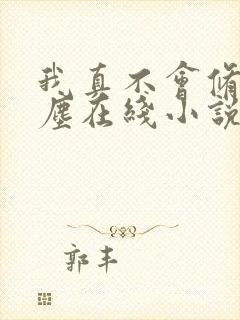 我真不會脩
塵在綫小說
郭丰